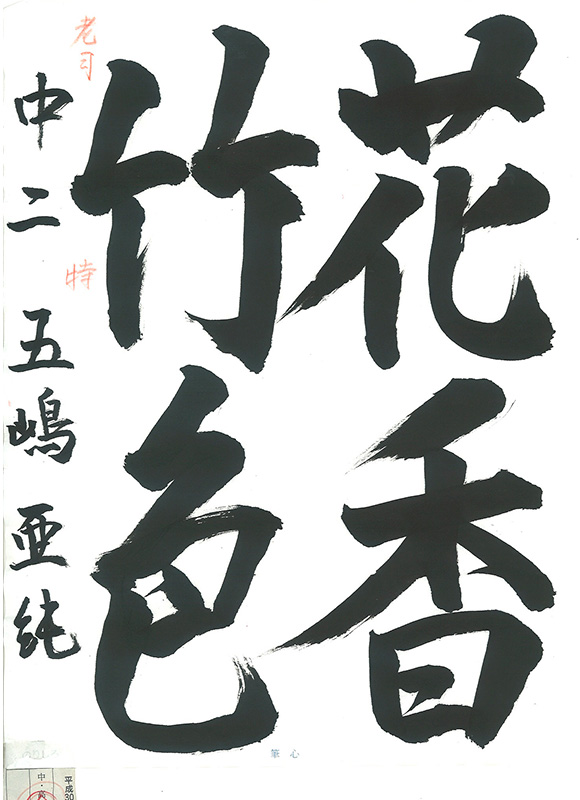 花香
竹色
中二 五嶋 亜純
特
筆心
平成30
中・